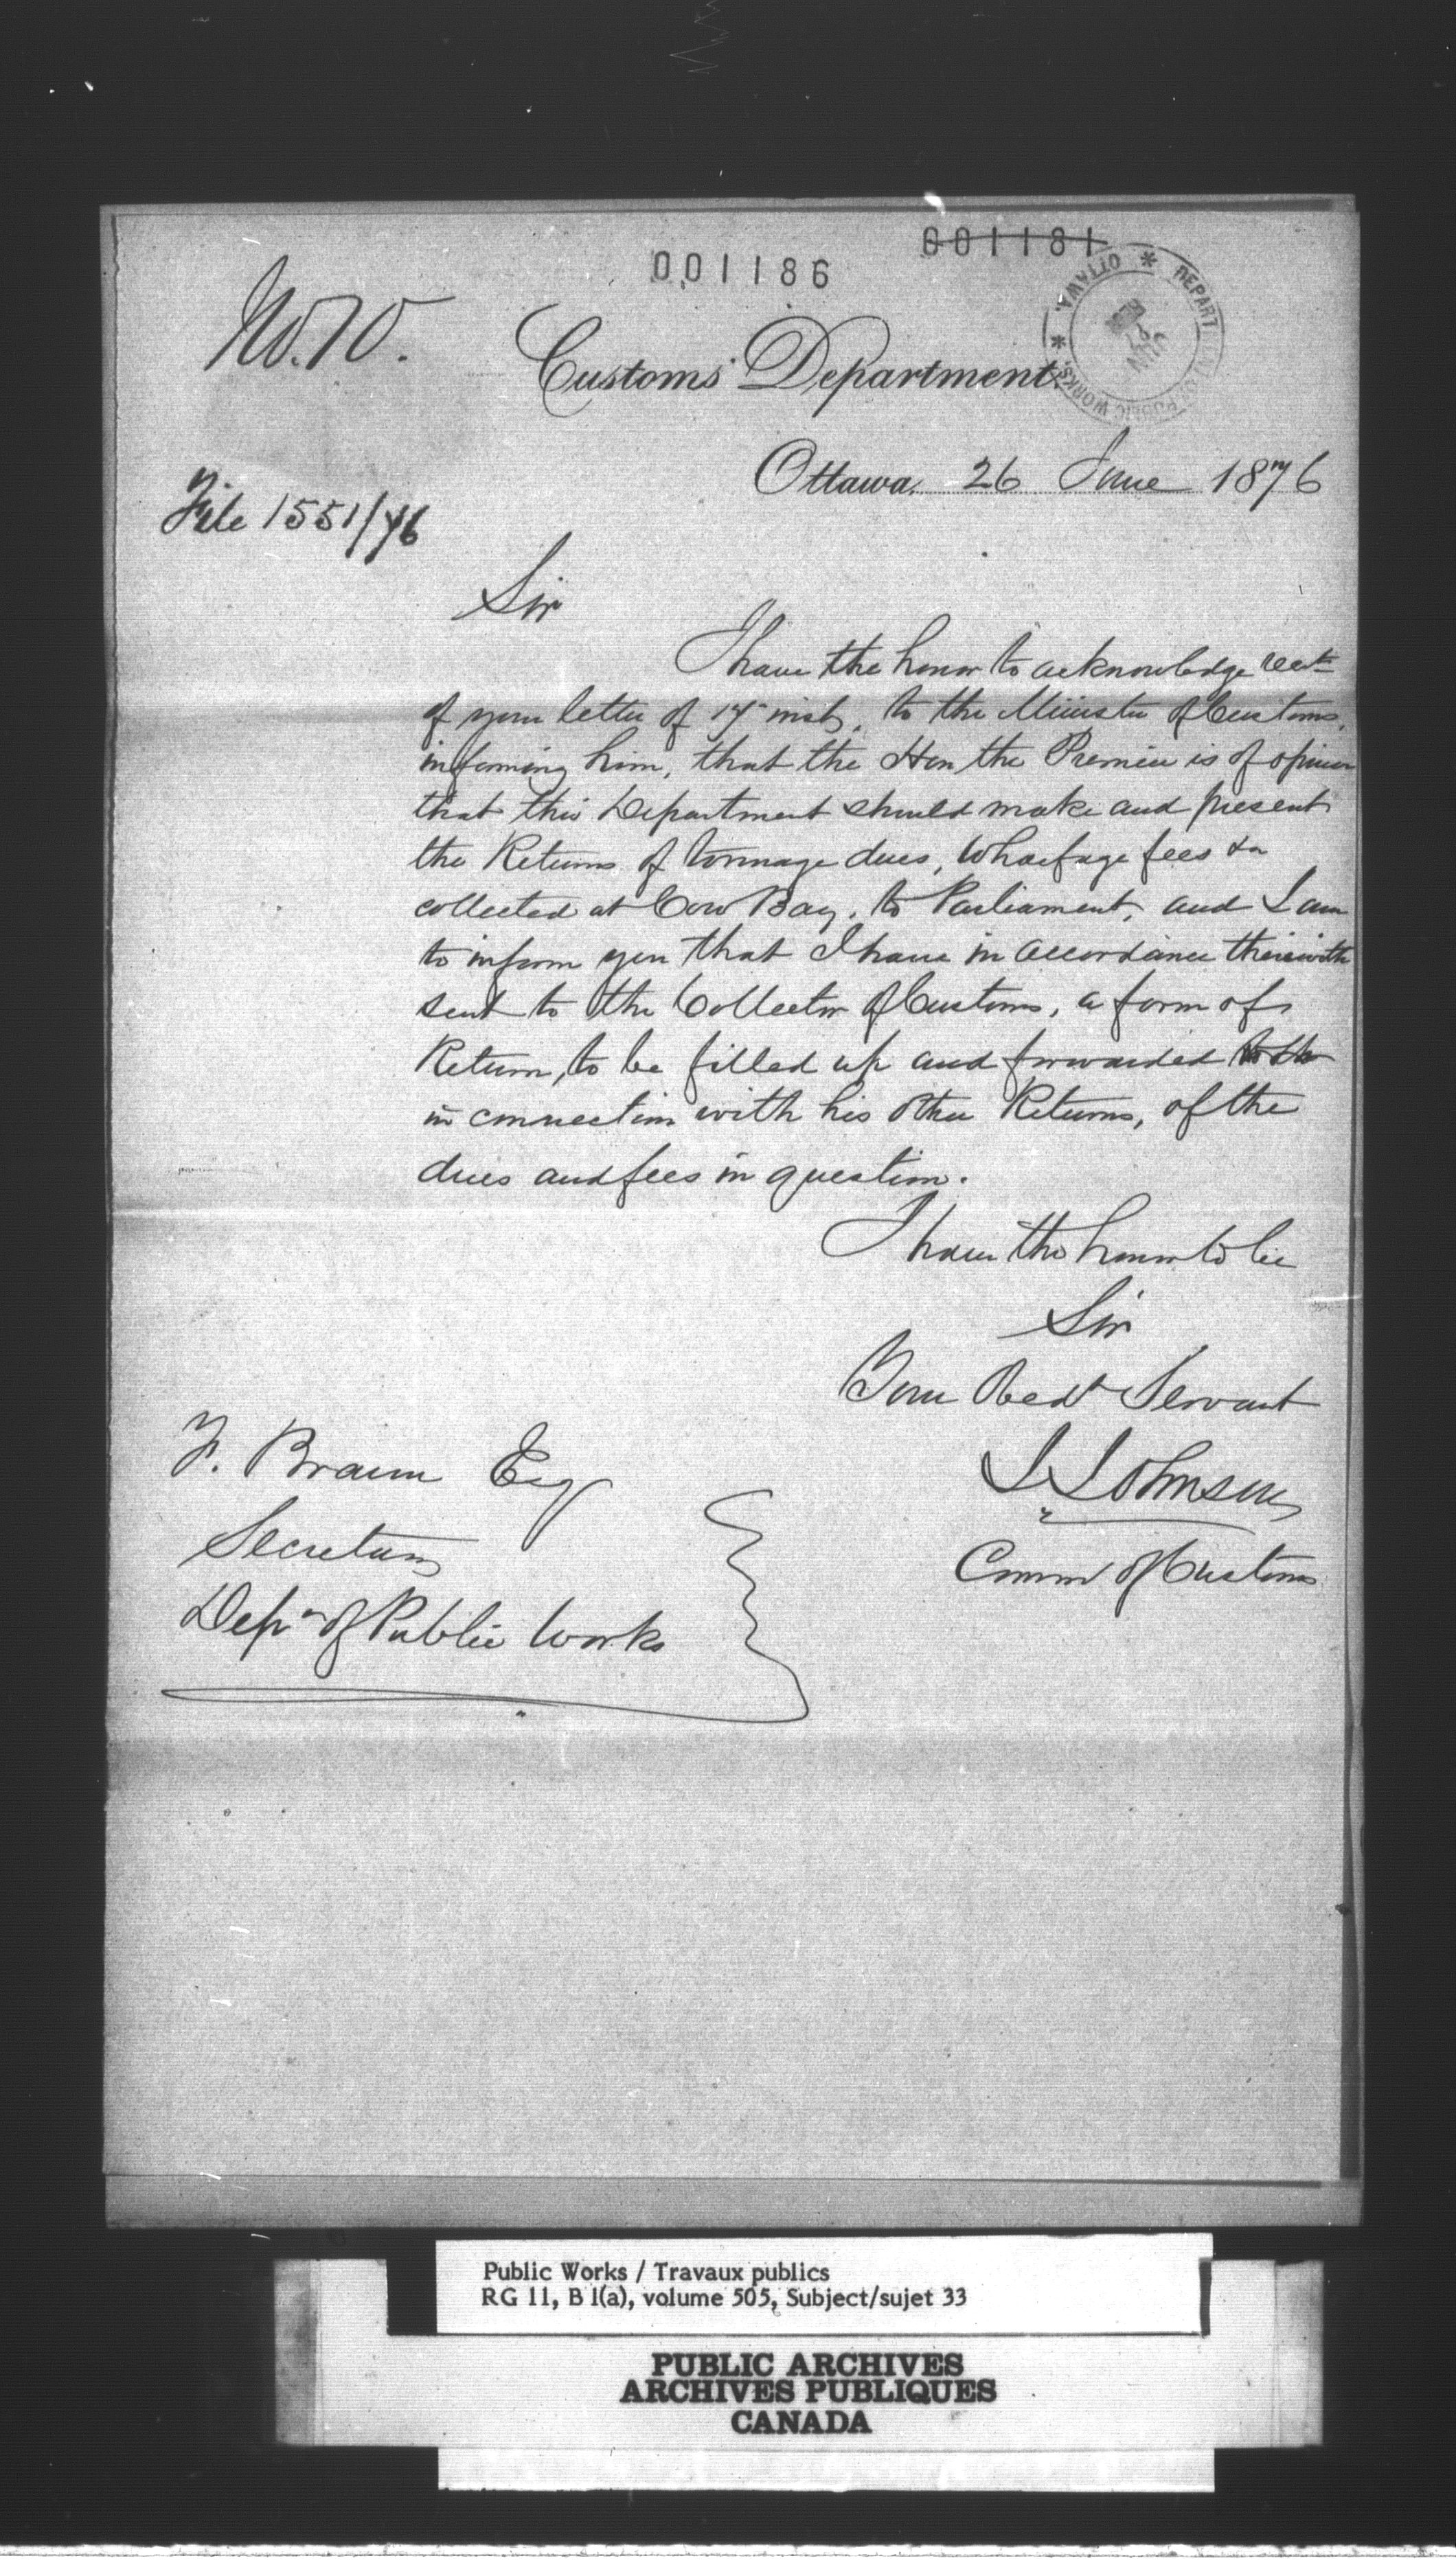 001181
001186
No. 10.
Customs Department
OTTAWA. * DEPART PUBLIC WORKS. *
JUN
Ottawa, 26 June 1876
File 1551/76
Sir
I have the honor to acknowledge rect
of your letter of 17 inst. to the Minister of Customs,
informing him, that the Hon the Premier is of opinion
that this Department should make and present
the Returns of tonnage dues, Wharfage fees &c
collected at Cow Bay, to Parliament, and I am
to inform you that I have in accordance therewith
sent to the Collector of Customs, a form of
Return, to be filled up and forwarded
in connection with his other Returns, of the
dues and fees in question.
I have the honor to be
Sir
Your Obedt Servant
J Johnson
Commr of Customs
F. Braun Esq
Secretary
Dept of Public Works
Public Works / Travaux publics
RG 11, B 1(a), volume 505, Subject/sujet 33
PUBLIC ARCHIVES
ARCHIVES PUBLIQUES
CANADA